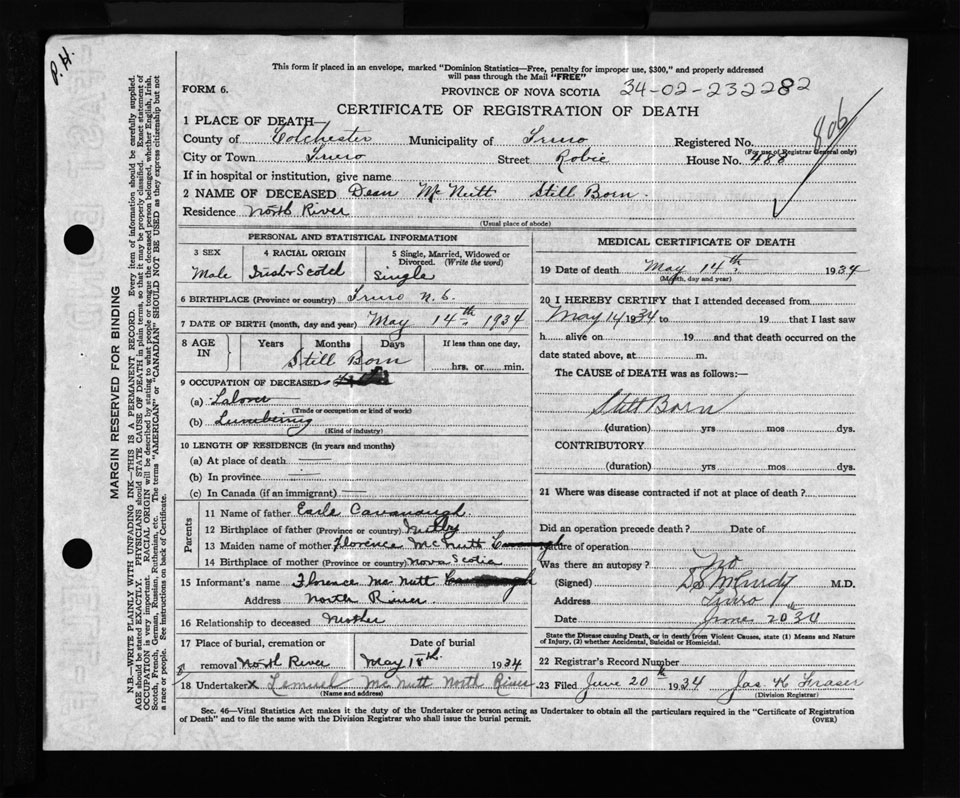 P. H.
This form if placed in an envelope, marked "Dominion Statistics—Free, penalty for improper use, $300," and properly addressed
will pass through the Mail "FREE"
FORM 6.
PROVINCE OF NOVA SCOTIA 34-02-232282
CERTIFICATE OF REGISTRATION OF DEATH
806
1 PLACE OF DEATH—
County of Colchester Municipality of Truro Registered No.
(For use of Registrar General only)
City or Town Truro Street Robie House No. 488
If in hospital or institution, give name
2 NAME OF DECEASED Dean McNutt Still Born.
Residence North River
(Usual place of abode)
PERSONAL AND STATISTICAL INFORMATION
3 SEX 4 RACIAL ORIGIN 5 Single, Married, Widowed or
Divorced. (Write the word)
Male Irish & Scotch Single
6 BIRTHPLACE (Province or country) Truro N.S.
7 DATE OF BIRTH (month, day and year) May 14th 1934
8 AGE
IN
Years Months Days If less than one day,
Still Born
hrs. or min.
9 OCCUPATION OF DECEASED
(a) Labour
(Trade or occupation or kind of work)
(b) Lumbering
(Kind of industry)
10 LENGTH OF RESIDENCE (in years and months)
(a) At place of death
(b) In province
(c) In Canada (if an immigrant)
Parents
11 Name of father Earle Cavanaugh
12 Birthplace of father (Province or country)
13 Maiden name of mother Florence McNutt
14 Birthplace of mother (Province or country) Nova Scotia
15 Informant's name Florence McNutt
Address North River
16 Relationship to deceased Mother
17 Place of burial, cremation or Date of burial
removal North River May 18th. 1934
18 Undertaker X Lemuel McNutt North River
(Name and address)
MEDICAL CERTIFICATE OF DEATH
19 Date of death May 14th. 1934
(Month, day and year)
20 I HEREBY CERTIFY that I attended deceased from
May 14 1934 to 19 that I last saw
h alive on 19 and that death occurred on the
date stated above, at m.
The CAUSE of DEATH was as follows:—
Still Born
(duration) yrs mos dys.
CONTRIBUTORY
(duration) yrs mos. dys.
21 Where was disease contracted if not at place of death?
Did an operation precede death? Date of
Nature of operation
Was there an autopsy? No
(Signed) M.D.
Address Truro
Date June 20th 34
State the Disease causing Death, or in death from Violent Causes, state (1) Means and Nature
of Injury, (2) whether Accidental, Suicidal or Homicidal.
22 Registrar's Record Number
23 Filed June 20th 1934 Jas. H Fraser
(Division Registrar)
Sec. 46—Vital Statistics Act makes it the duty of the Undertaker or person acting as Undertaker to obtain all the particulars required in the "Certificate of Registration
of Death" and to file the same with the Division Registrar who shall issue the burial permit.
(OVER)
MARGIN RESERVED FOR BINDING
N.B.—WRITE PLAINLY WITH UNFADING INK—THIS IS A PERMANENT RECORD. Every item of information should be carefully supplied.
AGE should be stated EXACTLY. PHYSICIANS should STATE CAUSE OF DEATH in plain terms, so that it may be properly classified. Exact statement of
OCCUPATION is very important. RACIAL ORIGIN will be described by stating to what people or tongue the deceased person belonged, whether English, Irish,
Scotch, French, German, Russian, Ruthenian, etc. The terms "AMERICAN" or "CANADIAN" SHOULD NOT BE USED as they express citizenship but not
a race or people. See instructions on back of Certificate.